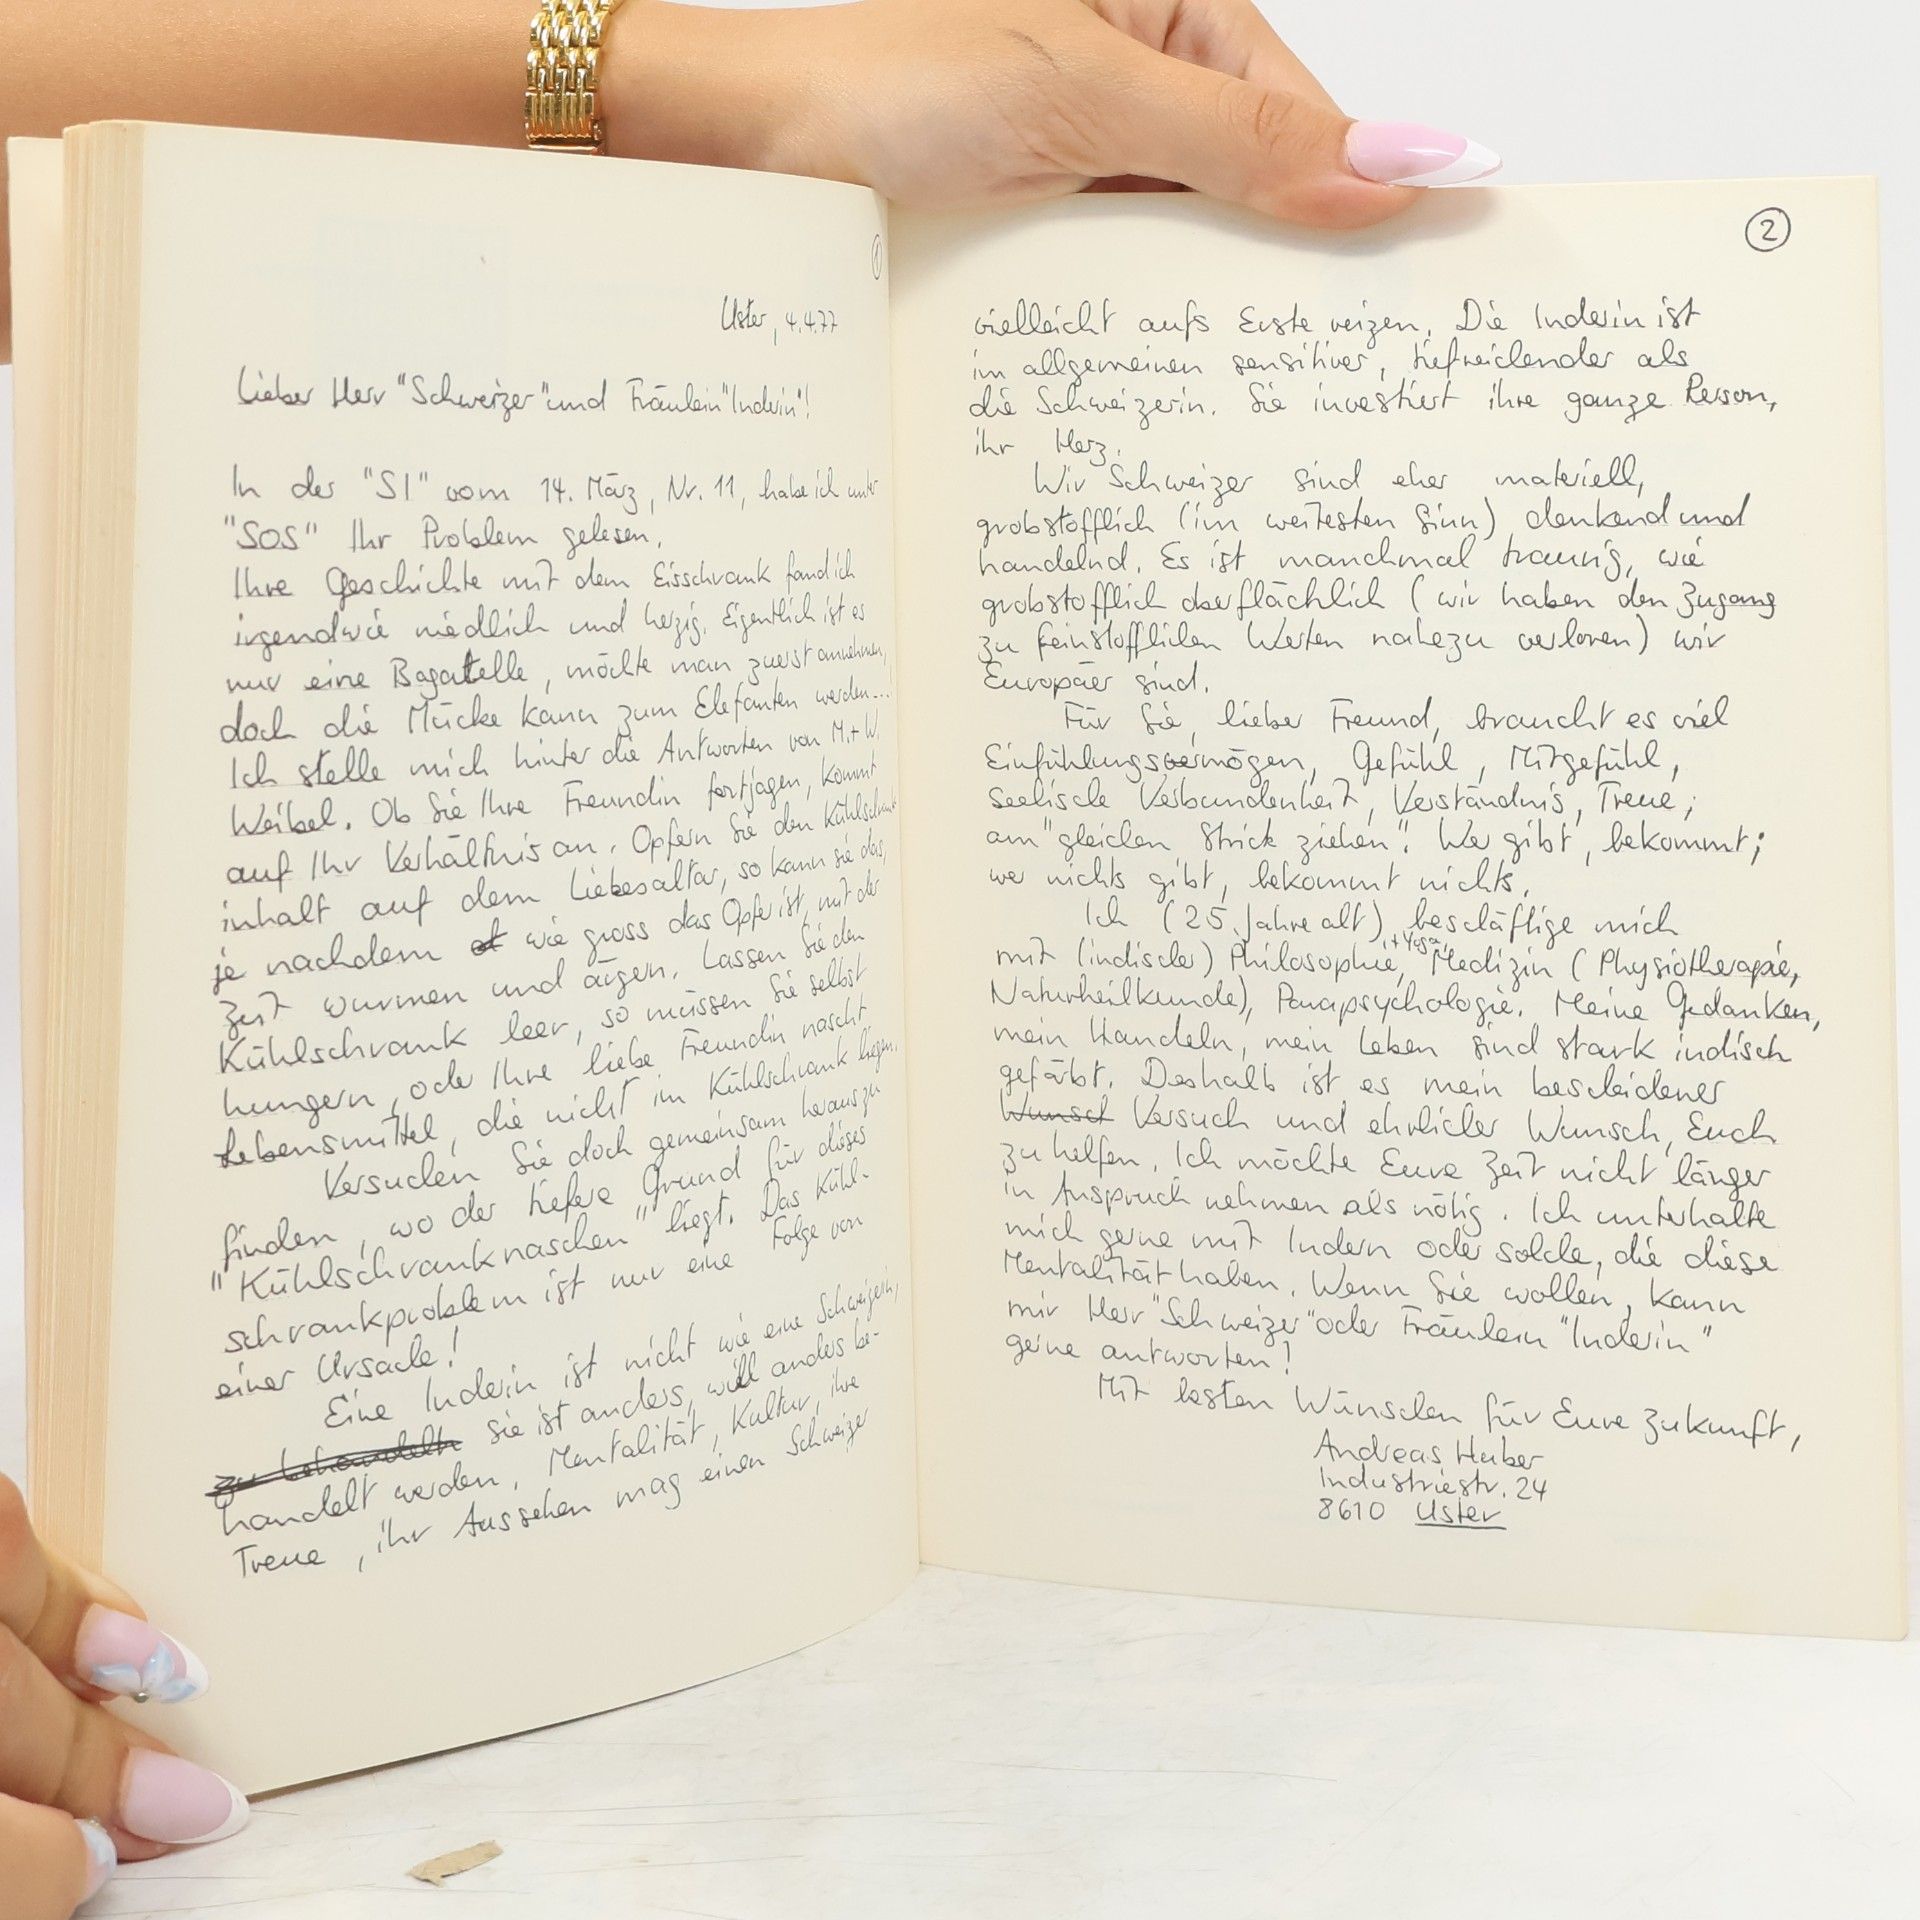 ①
Uster, 4.4.77
Lieber Herr "Schweizer" und Fräulein "Inderin"!
In der "SI" vom 14. März, Nr. 11, habe ich unter
"SOS" Ihr Problem gelesen.
Ihre Geschichte mit dem Eisschrank fand ich
irgendwie niedlich und herzig. Eigentlich ist es
nur eine Bagatelle, möchte man zuerst annehmen,
doch die Mücke kann zum Elefanten werden...!
Ich stelle mich hinter die Antworten von M.+W.
Weibel. Ob Sie Ihre Freundin fortjagen, kommt
auf Ihr Verhältnis an. Opfern Sie den Kühlschrank-
inhalt auf dem Liebesaltar, so kann sie das,
je nachdem wie gross das Opfer ist, mit der
Zeit wurmen und ärgern. Lassen Sie den
Kühlschrank leer, so müssen Sie selbst
hungern, oder Ihre liebe Freundin nascht
Lebensmittel, die nicht im Kühlschrank liegen.
Versuchen Sie doch gemeinsam herauszu
finden, wo der tiefere Grund für dieses
"Kühlschranknaschen" liegt. Das Kühl-
schrankproblem ist nur eine Folge von
einer Ursache!
Eine Inderin ist nicht wie eine Schweizerin,
zu behandeln sie ist anders, will anders be-
handelt werden. Mentalität, Kultur, ihre
Treue, ihr Aussehen mag einen Schweizer
②
vielleicht aufs Erste reizen. Die Inderin ist
im allgemeinen sensitiver, tiefreichender als
die Schweizerin. Sie investiert ihre ganze Person,
ihr Herz.
Wir Schweizer sind eher materiell,
grobstofflich (im weitesten Sinn) denkend und
handelnd. Es ist manchmal traurig, wie
grobstofflich oberflächlich (wir haben den Zugang
zu feinstofflichen Werten nahezu verloren) wir
Europäer sind.
Für Sie, lieber Freund, braucht es viel
Einfühlungsvermögen, Gefühl, Mitgefühl,
seelische Verbundenheit, Verständnis, Treue;
am "gleichen Strick ziehen". Wer gibt, bekommt;
wer nichts gibt, bekommt nichts.
Ich (25 Jahre alt) beschäftige mich
mit (indischer) Philosophie, + Yoga, Medizin (Physiotherapie,
Naturheilkunde), Parapsychologie. Meine Gedanken,
mein Handeln, mein Leben sind stark indisch
gefärbt. Deshalb ist es mein bescheidener
Wunsch Versuch und ehrlicher Wunsch, Euch
zu helfen. Ich möchte Eure Zeit nicht länger
in Anspruch nehmen als nötig. Ich unterhalte
mich gerne mit Indern oder solche, die diese
Mentalität haben. Wenn Sie wollen, kann
mir Herr "Schweizer" oder Fräulein "Inderin"
gerne antworten!
Mit besten Wünschen für Eure Zukunft,
Andreas Huber
Industriestr. 24
8610 Uster